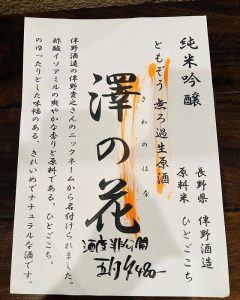 純米吟醸
長野県 伴野酒造
原料米 ひとごこち
ともぞう 無ろ過生原酒
さわのはな
澤の花
酒度非公開
480-
伴野酒造の伴野貴之さんのニックネームから名付けられました。
酢酸イソアミルの爽やかな香りと原料である。ひとごこち。
のゆったりとした味幅のある、きれいめでナチュラルな酒です。